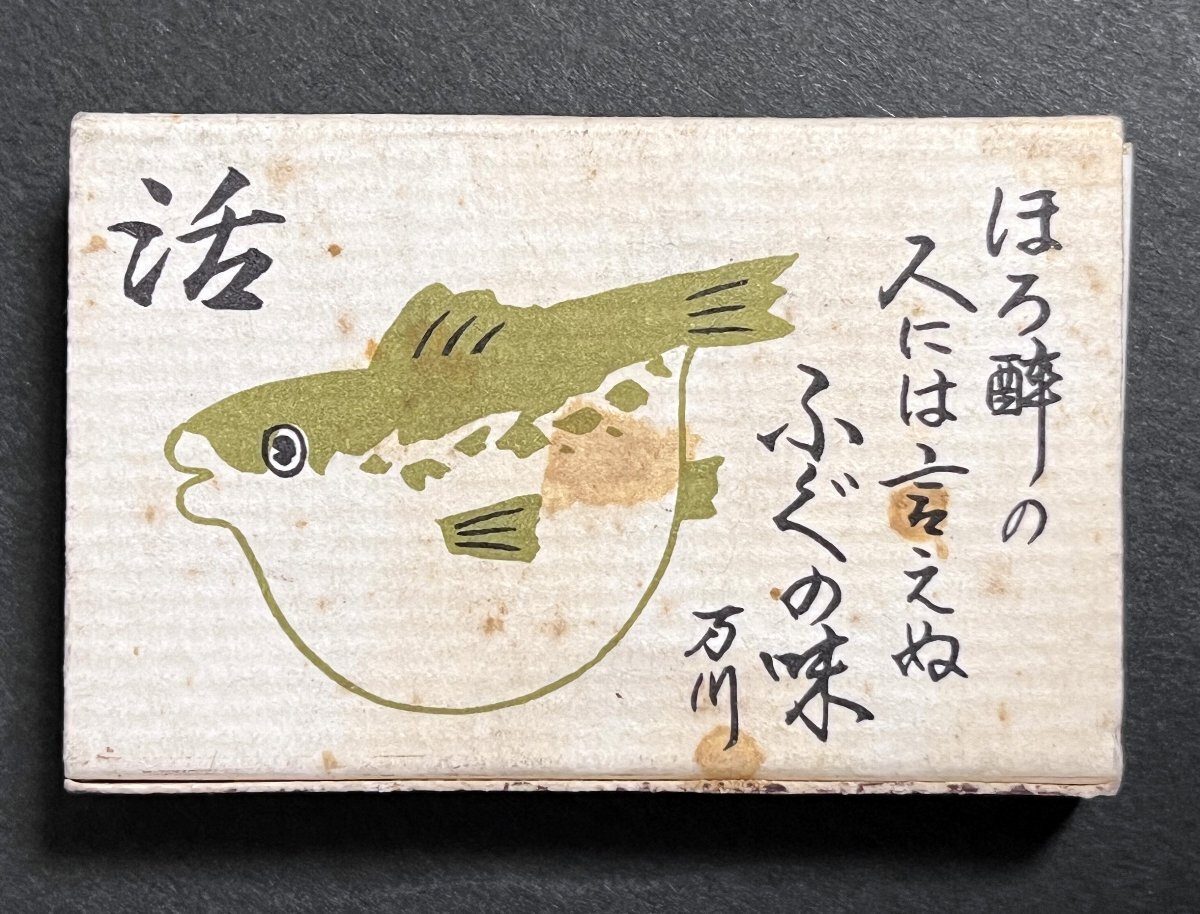 ほろ醉の
人には言えぬ
ふぐの味
万川
活